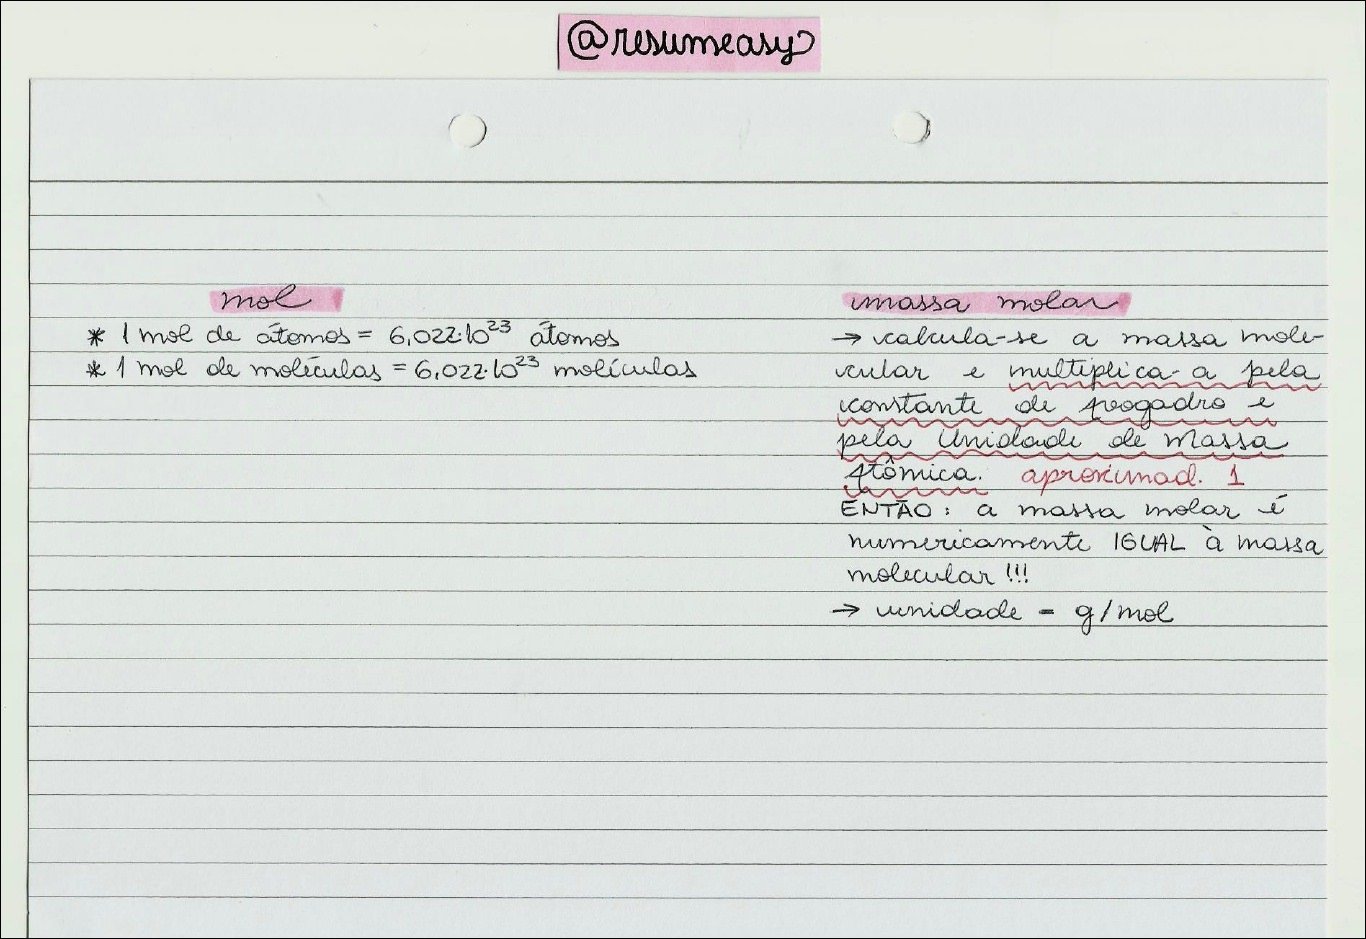 @resumeasy
mol
* 1 mol de átomos = 6,022·10²³ átomos
* 1 mol de moléculas = 6,022·10²³ moléculas
massa molar
→ calcula-se a massa mole-
cular e multiplica-a pela
constante de avogadro e
pela Unidade de Massa
Atômica. aproximad. 1
ENTÃO: a massa molar é
numericamente IGUAL à massa
molecular!!!
→ unidade = g/mol